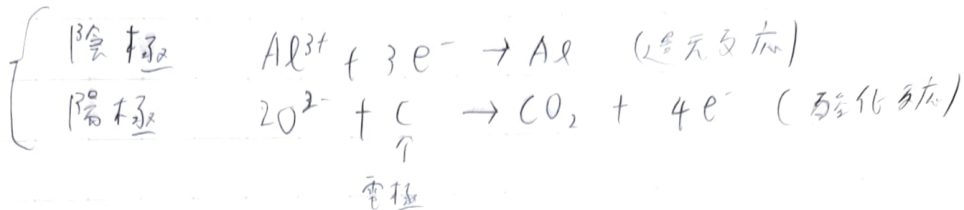 陰極 Al³⁺ + 3e⁻ → Al (還元反応)
陽極 2O²⁻ + C → CO₂ + 4e⁻ (酸化反応)
↑
電極